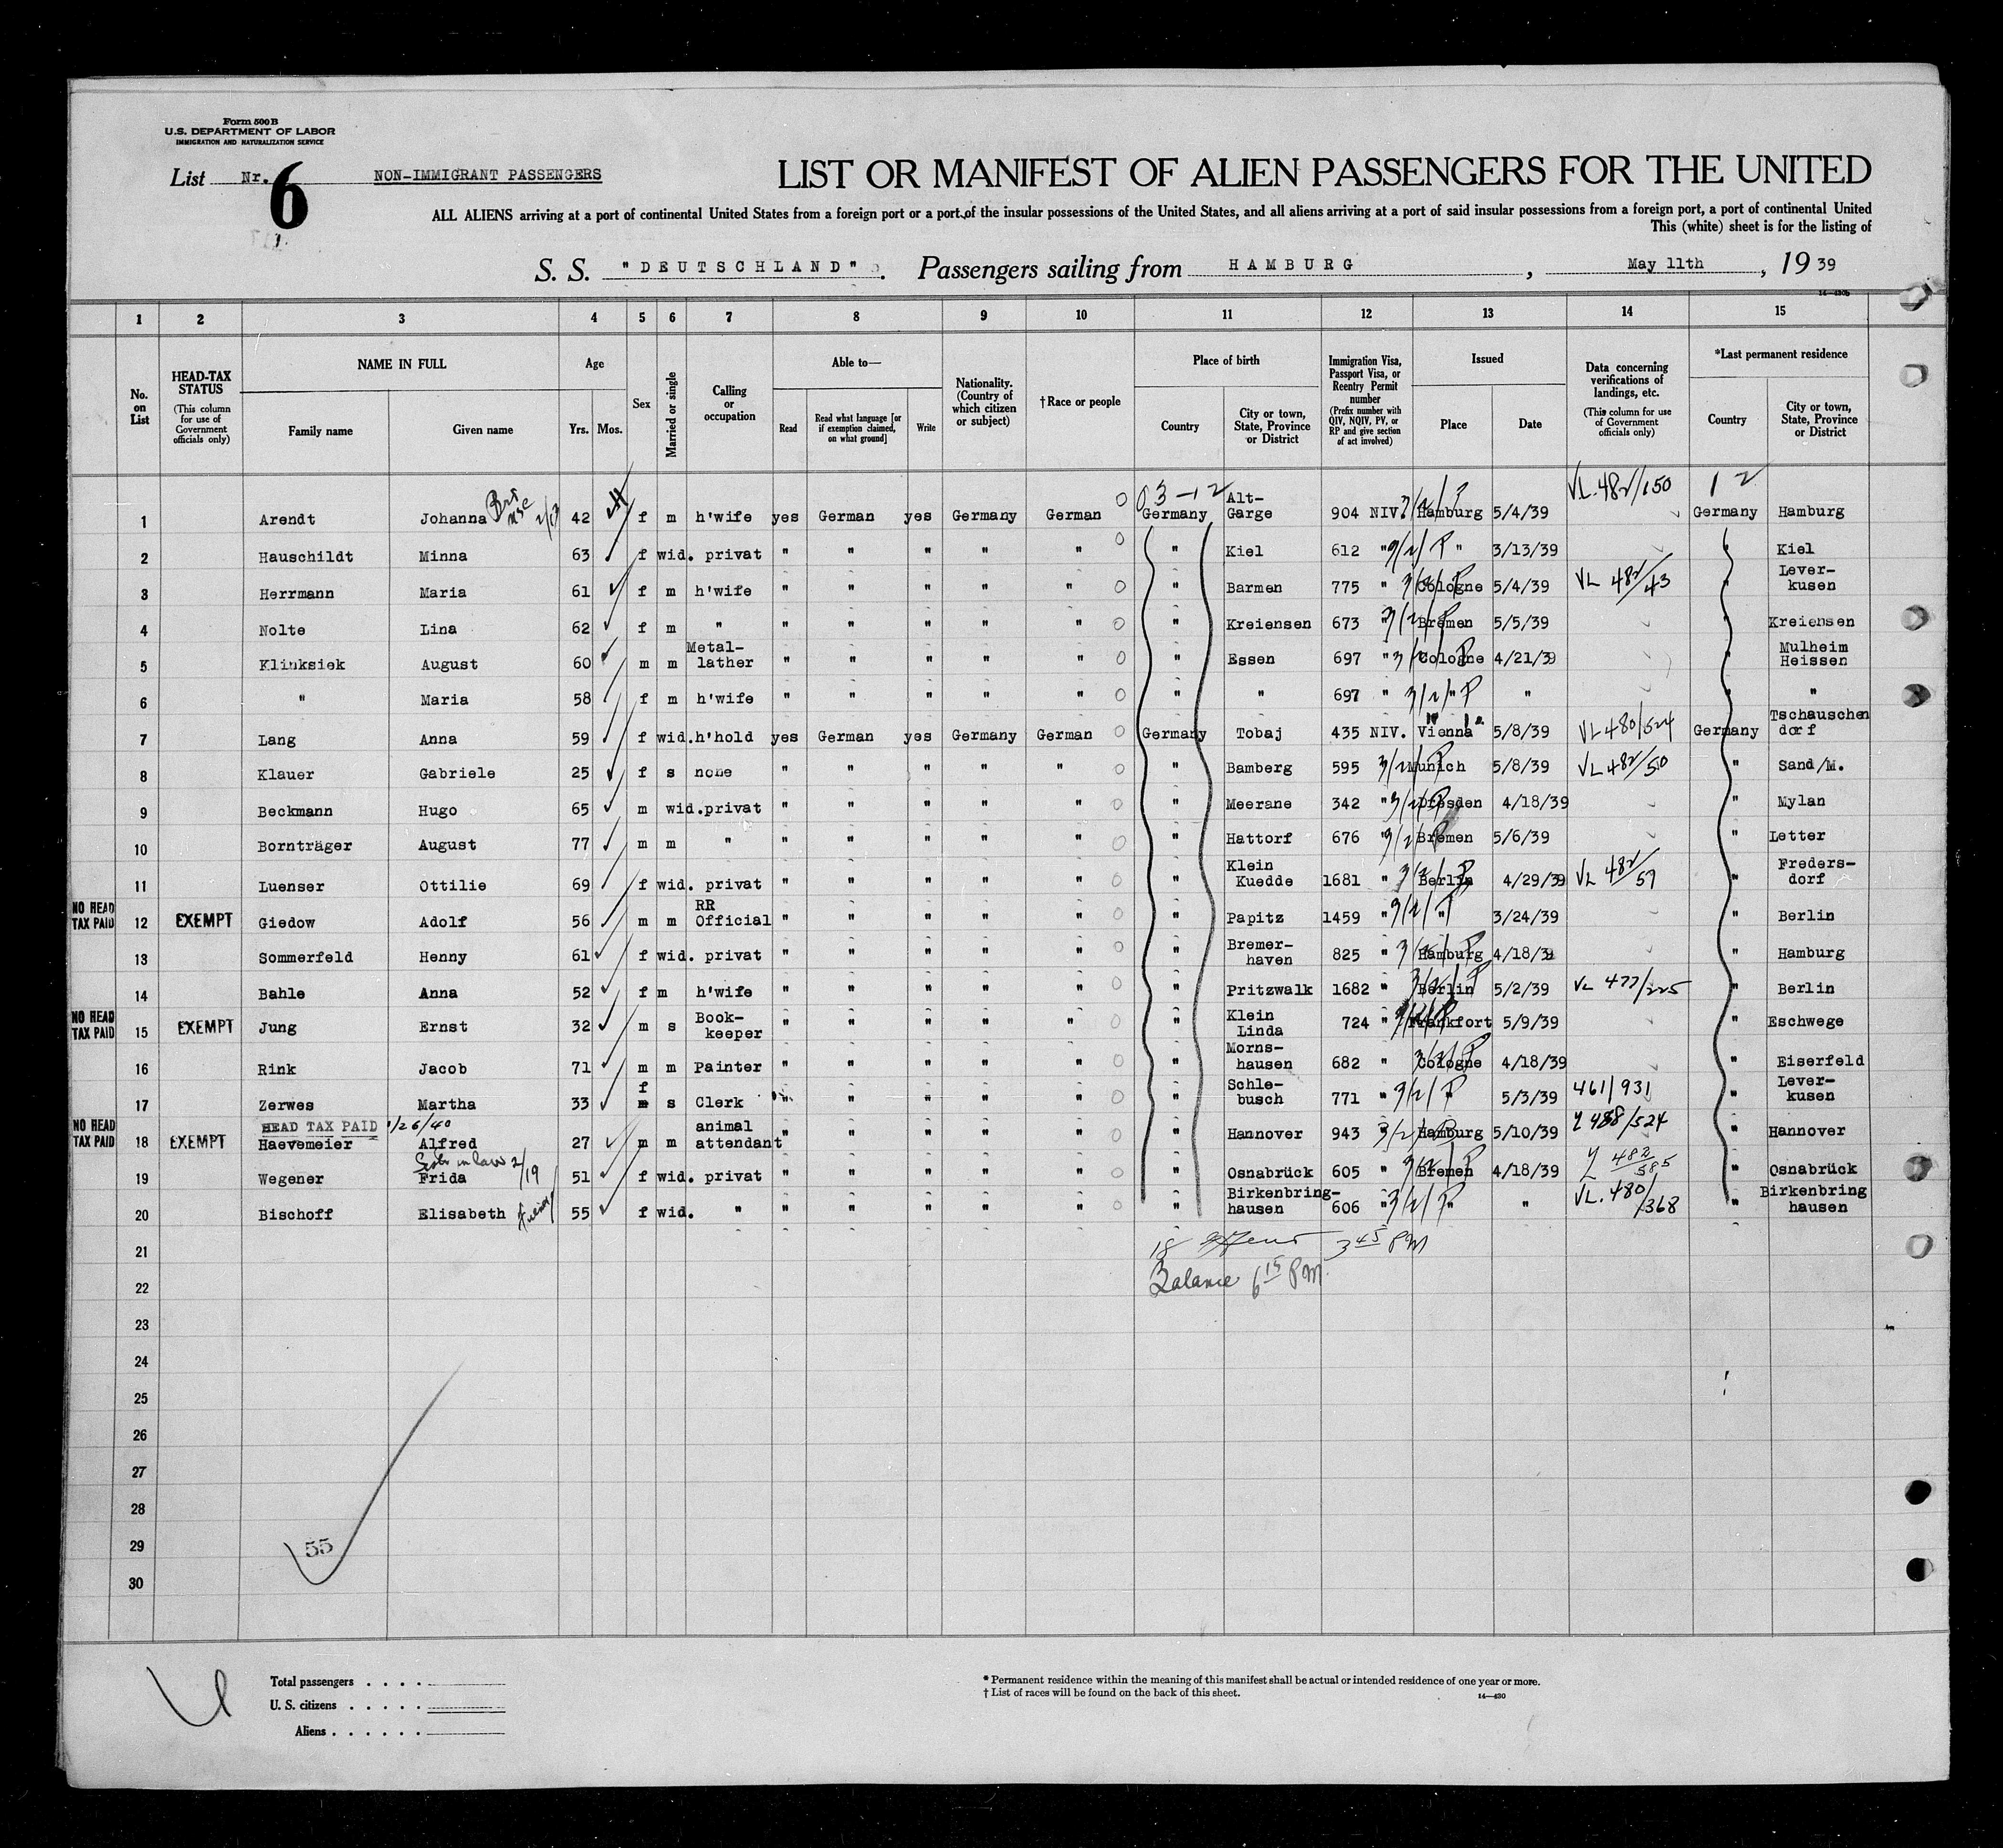 Form 500 B
U.S. DEPARTMENT OF LABOR
IMMIGRATION AND NATURALIZATION SERVICE
List Nr. 6 NON-IMMIGRANT PASSENGERS
LIST OR MANIFEST OF ALIEN PASSENGERS FOR THE UNITED
ALL ALIENS arriving at a port of continental United States from a foreign port or a port of the insular possessions of the United States, and all aliens arriving at a port of said insular possessions from a foreign port, a port of continental United
This (white) sheet is for the listing of
S. S. "DEUTSCHLAND". Passengers sailing from HAMBURG, May 11th, 19 39
1 2 3 4 5 6 7 8 9 10 11 12 13 14 15
No. on List
HEAD-TAX STATUS (This column for use of Government officials only)
NAME IN FULL Family name Given name
Age Yrs. Mos.
Sex
Married or single
Calling or occupation
Able to— Read Read what language [or if exemption claimed, on what ground] Write
Nationality. (Country of which citizen or subject)
†Race or people
Place of birth Country City or town, State, Province or District
Immigration Visa, Passport Visa, or Reentry Permit number (Prefix number with QIV, NQIV, PV, or RP and give section of act involved)
Issued Place Date
Data concerning verifications of landings, etc. (This column for use of Government officials only)
*Last permanent residence Country City or town, State, Province or District
1 Arendt Johanna 42 f m h'wife yes German yes Germany German Germany Alt-Garge 904 NIV. Hamburg 5/4/39 VL.482/150 Germany Hamburg
2 Hauschildt Minna 63 f wid. privat " " " " " " Kiel 612 " " 3/13/39 " Kiel
3 Herrmann Maria 61 f m h'wife " " " " " " Barmen 775 " Cologne 5/4/39 VL 482/43 " Lever-kusen
4 Nolte Lina 62 f m " " " " " " " Kreiensen 673 " Bremen 5/5/39 " Kreiensen
5 Klinksiek August 60 m m Metal-lather " " " " " " Essen 697 " Cologne 4/21/39 " Mulheim Heissen
6 " Maria 58 f m h'wife " " " " " " " 697 " " " " "
7 Lang Anna 59 f wid. h'hold yes German yes Germany German Germany Tobaj 435 NIV. Vienna 5/8/39 VL480/524 Germany Tschauschen dorf
8 Klauer Gabriele 25 f s none " " " " " " Bamberg 595 Munich 5/8/39 VL482/50 " Sand/M.
9 Beckmann Hugo 65 m wid. privat " " " " " " Meerane 342 " Dresden 4/18/39 " Mylan
10 Bornträger August 77 m m " " " " " " " Hattorf 676 " Bremen 5/6/39 " Letter
11 Luenser Ottilie 69 f wid. privat " " " " " " Klein Kuedde 1681 " Berlin 4/29/39 VL 482/57 " Freders-dorf
NO HEAD TAX PAID 12 EXEMPT Giedow Adolf 56 m m RR Official " " " " " " Papitz 1459 " " 3/24/39 " Berlin
13 Sommerfeld Henny 61 f wid. privat " " " " " " Bremer-haven 825 " Hamburg 4/18/39 " Hamburg
14 Bahle Anna 52 f m h'wife " " " " " " Pritzwalk 1682 " Berlin 5/2/39 VL 477/225 " Berlin
NO HEAD TAX PAID 15 EXEMPT Jung Ernst 32 m s Book-keeper " " " " " " Klein Linda 724 " Frankfort 5/9/39 " Eschwege
16 Rink Jacob 71 m m Painter " " " " " " Morns-hausen 682 " Cologne 4/18/39 " Eiserfeld
17 Zerwes Martha 33 f s Clerk " " " " " " Schle-busch 771 " " 5/3/39 461/931 " Lever-kusen
HEAD TAX PAID 1/26/40
NO HEAD TAX PAID 18 EXEMPT Haevemeier Alfred 27 m m animal attendant " " " " " " Hannover 943 " Hamburg 5/10/39 488/524 " Hannover
19 Wegener Frida 51 f wid. privat " " " " " " Osnabrück 605 " Bremen 4/18/39 482/585 " Osnabrück
20 Bischoff Elisabeth 55 f wid. " " " " " " " Birkenbring-hausen 606 " " " VL.480/368 " Birkenbring hausen
21 18 3 45 PM
22 Balance 6 15 PM.
23
24
25
26
27
28
29 55
30
Total passengers
U. S. citizens
Aliens
* Permanent residence within the meaning of this manifest shall be actual or intended residence of one year or more.
† List of races will be found on the back of this sheet.
14—430